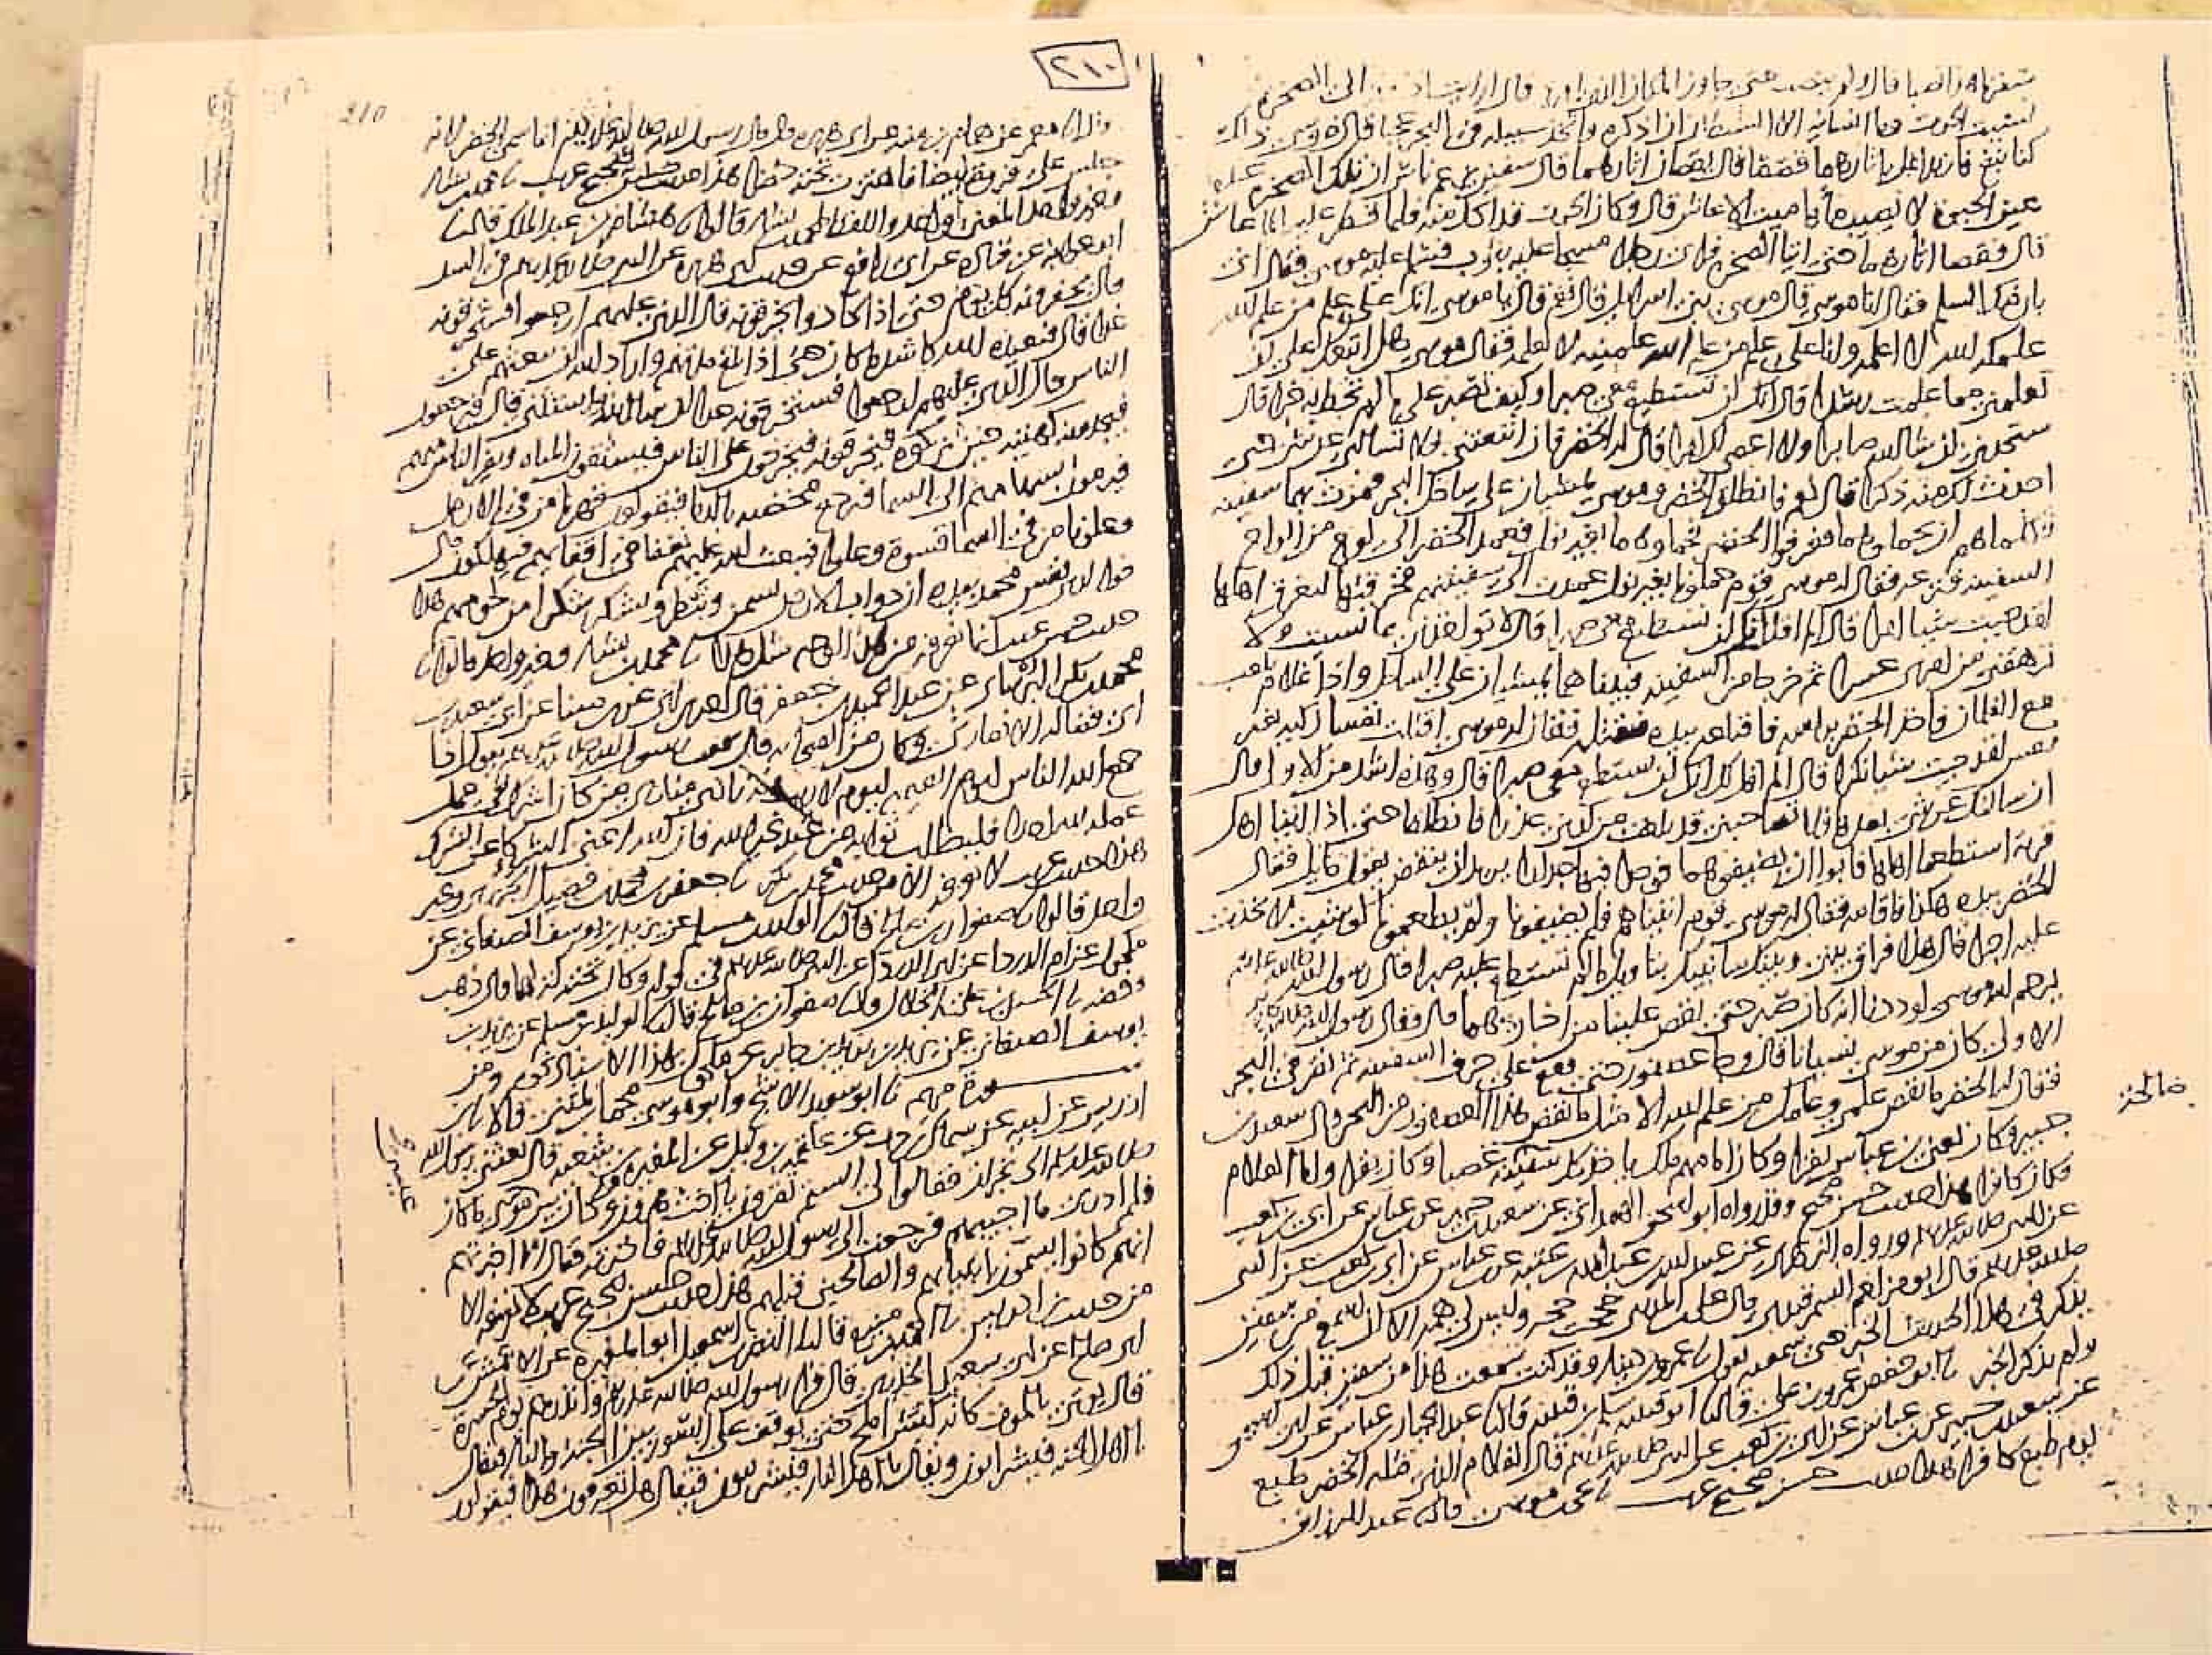 سفرنا هذا نصبا قال ولم ينصب حتى جاوز المكان الذي امر به قال ارايت اذ اوينا الى الصخرة
نسيت الحوت وما انسانيه الا الشيطان ان اذكره واتخذ سبيله في البحر عجبا قال موسى ذلك
كنا نبغ فارتدا على اثارهما قصصا قال يقصان اثارهما قال سفين يزعم ناس ان تلك الصخرة عندها
عين الحيوة لا يصيب ماها ميتا الا عاش قال وكان الحوت قد اكل منه فلما قطر عليه الما عاش
قال فقصا اثارهما حتى اتيا الصخرة فراى رجلا مسجا عليه بثوب فسلم عليه موسى فقال انى
بارضك السلم فقال انا موسى قال موسى بني اسرايل قال نعم قال يا موسى انك على علم من علم الله
علمكه الله لا اعلمه وانا على علم من علم الله علمنيه لا تعلمه فقال موسى هل اتبعك على ان
تعلمني مما علمت رشدا قال انك لن تستطيع معي صبرا وكيف تصبر على ما لم تحط به خبرا قال
ستجدني ان شا الله صابرا ولا اعصي لك امرا قال له الخضر فان اتبعتني فلا تسالني عن شي حتى
احدث لك منه ذكرا قال نعم فانطلق الخضر وموسى يمشيان على ساحل البحر فمرت بهما سفينه
فكلماهم ان يحملوهما فعرفوا الخضر فحملوهما بغير نول فعمد الخضر الى لوح من الواح
السفينه فنزعه فقال له موسى قوم حملونا بغير نول عمدت الى سفينتهم فخرقتها لتغرق اهلها
لقد جيت شيا امرا قال الم اقل انك لن تستطيع معي صبرا قال لا تواخذني بما نسيت ولا
ترهقني من امري عسرا ثم خرجا من السفينه فبينما هما يمشيان على الساحل واذا غلام يلعب
مع الغلمان فاخذ الخضر براسه فاقتلعه بيده فقتله فقال له موسى اقتلت نفسا زكيه بغير
نفس لقد جيت شيا نكرا قال الم اقل لك انك لن تستطيع معي صبرا قال وهذه اشد من الاولى قال
ان سالتك عن شي بعدها فلا تصاحبني قد بلغت من لدني عذرا فانطلقا حتى اذا اتيا اهل
قرية استطعما اهلها فابوا ان يضيفوهما فوجدا فيها جدارا يريد ان ينقض يقول مايل فقال
الخضر بيده هكذا فاقامه فقال له موسى قوم اتيناهم فلم يضيفونا ولم يطعمونا لو شيت لاتخذت
عليه اجرا قال هذا فراق بيني وبينك سانبيك بتاويل ما لم تستطع عليه صبرا قال رسول الله صلى الله عليه وسلم
يرحم الله موسى لوددنا انه كان صبر حتى يقص علينا من اخبارهما قال وقال رسول الله صلى الله عليه وسلم
الاولى كان من موسى نسيانا قال وجا عصفور حتى وقع على حرف السفينه ثم نقر في البحر
فقال له الخضر ما نقص علمي وعلمك من علم الله الا مثل ما نقص هذا العصفور من البحر قال سعيد بن
جبير وكان يعني ابن عباس يقرا وكان امامهم ملك ياخذ كل سفينه غصبا وكان يقرا واما الغلام
فكان كافرا هذا حديث حسن صحيح وقد رواه ابو اسحق الهمداني عن سعيد بن جبير عن ابن عباس عن ابي بن كعب
عن النبي صلى الله عليه وسلم ورواه الزهري عن عبيد الله بن عبد الله بن عتبه عن ابن عباس عن ابي بن كعب عن النبي
صلى الله عليه وسلم قال ابو مزاحم السمرقندي قال علي بن المديني حججت حجة وليس لي همة الا ان اسمع من سفين
يذكر في هذا الحديث الخبر حتى سمعته يقول نا عمرو بن دينار وقد كنت سمعت هذا من سفين قبل ذلك
ولم يذكر الخبر نا ابو حفص عمرو بن علي قال نا ابو قتيبه سلم بن قتيبه قال نا عبد الجبار بن عباس عن ابي اسحق
عن سعيد بن جبير عن ابن عباس عن ابي بن كعب عن النبي صلى الله عليه وسلم قال الغلام الذي قتله الخضر طبع
يوم طبع كافرا هذا حديث حسن صحيح غريب نا يحيى بن موسى قال نا عبد الرزاق
٢١٠
210
قال نا معمر عن همام بن منبه عن ابي هريرة قال قال رسول الله صلى الله عليه وسلم انما سمي الخضر لانه
جلس على فروة بيضا فاهتزت تحته خضرا هذا حديث حسن صحيح غريب نا محمد بن بشار
وغير واحد المعنى واحد واللفظ لمحمد بن بشار قالوا نا هشام بن عبد الملك قال نا
ابو عوانه عن قتاده عن ابي رافع عن حديث ابي هريرة عن النبي صلى الله عليه وسلم في السد
قال يحفرونه كل يوم حتى اذا كادوا يخرقونه قال الذي عليهم ارجعوا فستخرقونه
غدا قال فيعيده الله كاشد ما كان حتى اذا بلغ مدتهم واراد الله ان يبعثهم على
الناس قال الذي عليهم ارجعوا فستخرقونه غدا ان شا الله واستثنى قال فيرجعون
فيجدونه كهيئته حين تركوه فيخرقونه فيخرجون على الناس فيستقون المياه ويفر الناس منهم
فيرمون بسهامهم الى السما فترجع مخضبه بالدما فيقولون قهرنا من في الارض
وعلونا من في السما قسوة وعلوا فيبعث الله عليهم نغفا في اقفايهم فيهلكون قال
فوالذي نفس محمد بيده ان دواب الارض لتسمن وتبطر وتشكر شكرا من لحومهم هذا
حديث حسن غريب انما نعرفه من هذا الوجه مثل هذا نا محمد بن بشار وغير واحد قالوا نا
محمد بن بكر البرساني عن عبد الحميد بن جعفر قال اخبرني ابي عن ابن مينا عن ابي سعيد بن
ابي فضاله الانصاري وكان من الصحابه قال سمعت رسول الله صلى الله عليه وسلم يقول اذا
جمع الله الناس ليوم القيمه ليوم لا ريب فيه نادى مناد من كان اشرك في عمل
عمله لله احدا فليطلب ثوابه من عند غير الله فان الله اغنى الشركا عن الشرك
هذا حديث غريب لا نعرفه الا من حديث محمد بن بكر نا جعفر بن محمد بن فضيل الجزري وغير
واحد قالوا نا صفوان بن صالح قال نا الوليد بن مسلم عن يزيد بن يوسف الصنعاني عن
مكحول عن ام الدردا عن ابي الدردا عن النبي صلى الله عليه وسلم في قوله وكان تحته كنز لهما قال ذهب
وفضه نا الحسن بن علي الخلال قال نا صفوان بن صالح قال نا الوليد بن مسلم عن يزيد بن
يوسف الصنعاني عن يزيد بن يزيد بن جابر عن مكحول بهذا الاسناد نحوه ومن
سورة مريم نا ابو سعيد الاشج وابو موسى محمد بن المثنى قالا نا ابن
ادريس عن ابيه عن سماك بن حرب عن علقمه بن وايل عن المغيره بن شعبه قال بعثني رسول الله
صلى الله عليه وسلم الى نجران فقالوا لي الستم تقرون يا اخت هرون وقد كان بين موسى وعيسى ما كان
فلم ادر ما اجيبهم فرجعت الى رسول الله صلى الله عليه وسلم فاخبرته فقال الا اخبرتهم
انهم كانوا يسمون بانبيايهم والصالحين قبلهم هذا حديث حسن صحيح غريب لا نعرفه الا
من حديث ابن ادريس نا احمد بن منيع قال نا النضر بن اسمعيل ابو المغيره عن الاعمش عن
ابي صالح عن ابي سعيد الخدري قال قرا رسول الله صلى الله عليه وسلم وانذرهم يوم الحسرة
قال يوتى بالموت كانه كبش املح حتى يوقف على السور بين الجنه والنار فيقال
يا اهل الجنه فيشرايبون ويقال يا اهل النار فيشرايبون فيقال هل تعرفون هذا فيقولون